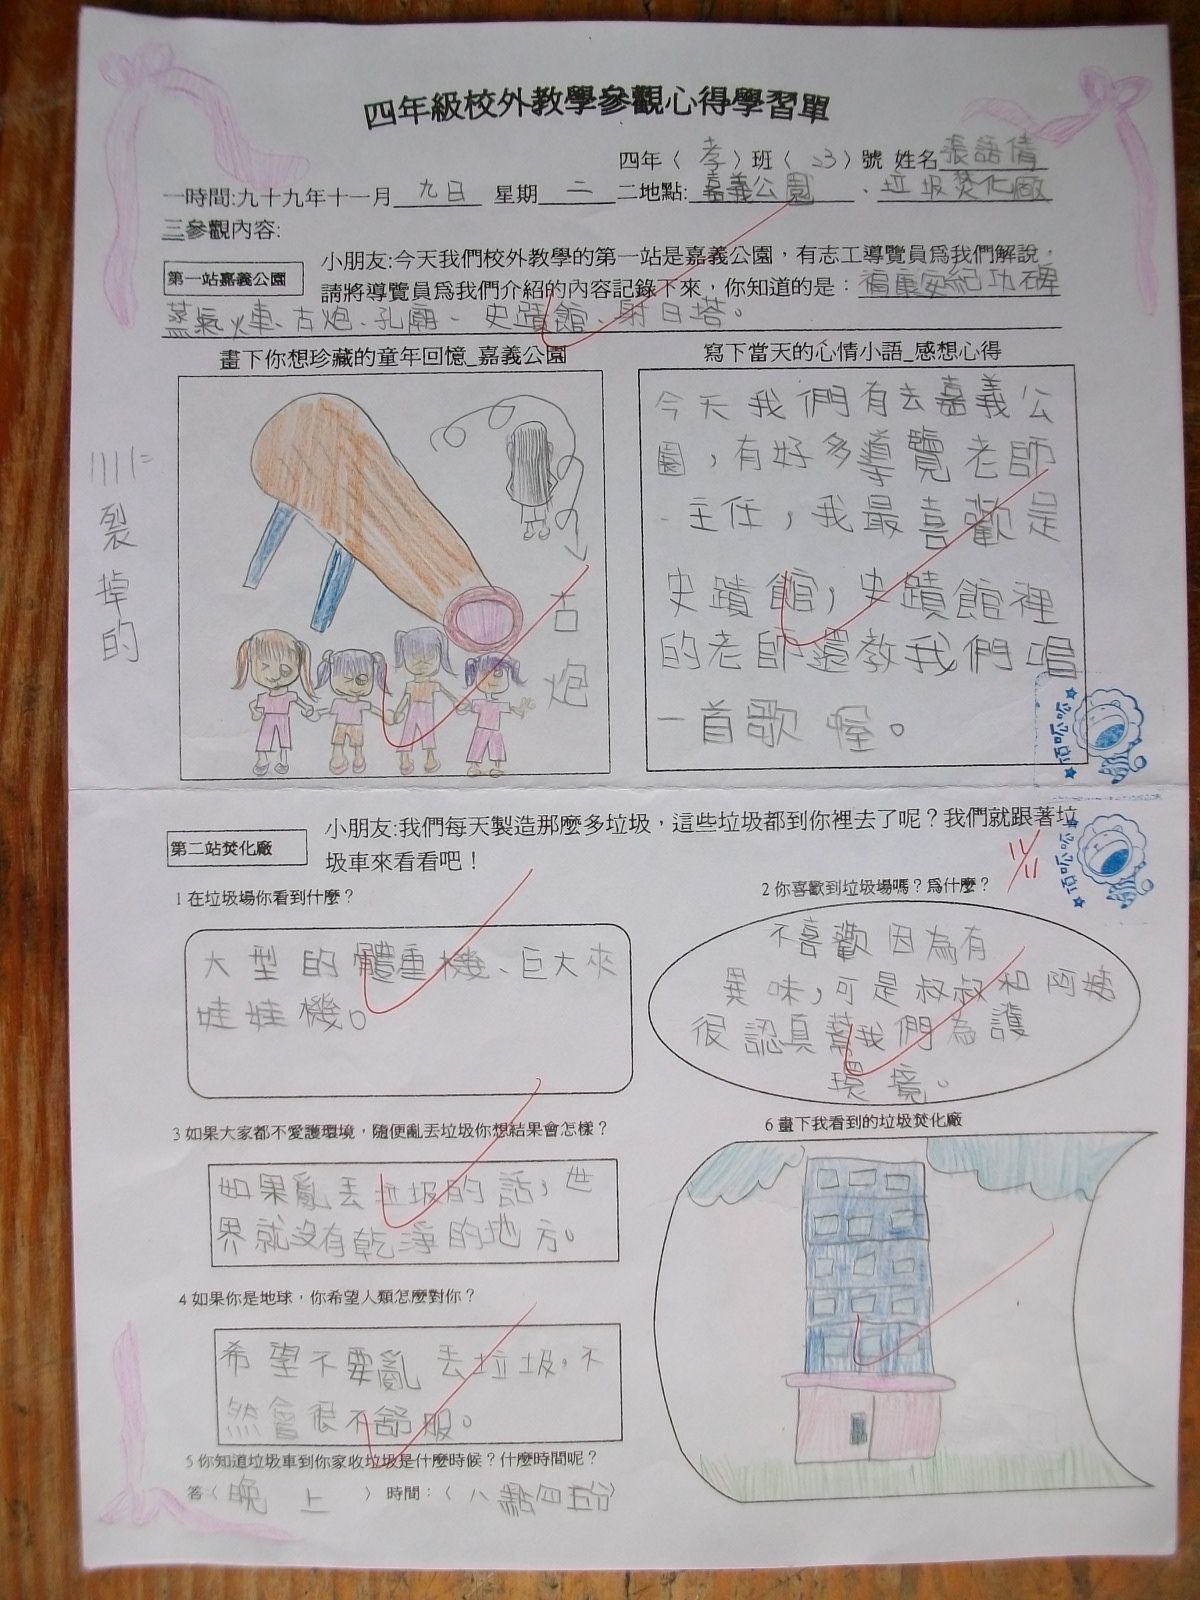 四年級校外教學參觀心得學習單
四年（孝）班（23）號 姓名張語倩
一時間:九十九年十一月九日 星期二 二地點:嘉義公園、垃圾焚化廠
三參觀內容:
第一站嘉義公園
小朋友:今天我們校外教學的第一站是嘉義公園，有志工導覽員爲我們解說，
請將導覽員爲我們介紹的內容記錄下來，你知道的是：福康安紀功碑
蒸氣火車、古炮、孔廟、史蹟館、射日塔。
畫下你想珍藏的童年回憶_嘉義公園
古炮
裂掉的
寫下當天的心情小語_感想心得
今天我們有去嘉義公
園，有好多導覽老師
、主任，我最喜歡是
史蹟館，史蹟館裡
的老師還教我們唱
一首歌喔。
第二站焚化廠
小朋友:我們每天製造那麼多垃圾，這些垃圾都到你裡去了呢？我們就跟著垃
圾車來看看吧！
11/11
1 在垃圾場你看到什麼？
大型的體重機、巨大夾
娃娃機。
2 你喜歡到垃圾場嗎？爲什麼？
不喜歡因為有
異味，可是叔叔和阿姨
很認真幫我們為護
環境。
3 如果大家都不愛護環境，隨便亂丟垃圾你想結果會怎樣？
如果亂丟垃圾的話，世
界就沒有乾淨的地方。
4 如果你是地球，你希望人類怎麼對你？
希望不要亂丟垃圾，不
然會很不舒服。
5 你知道垃圾車到你家收垃圾是什麼時候？什麼時間呢？
答（晚上）時間：（八點四五分）
6 畫下我看到的垃圾焚化廠